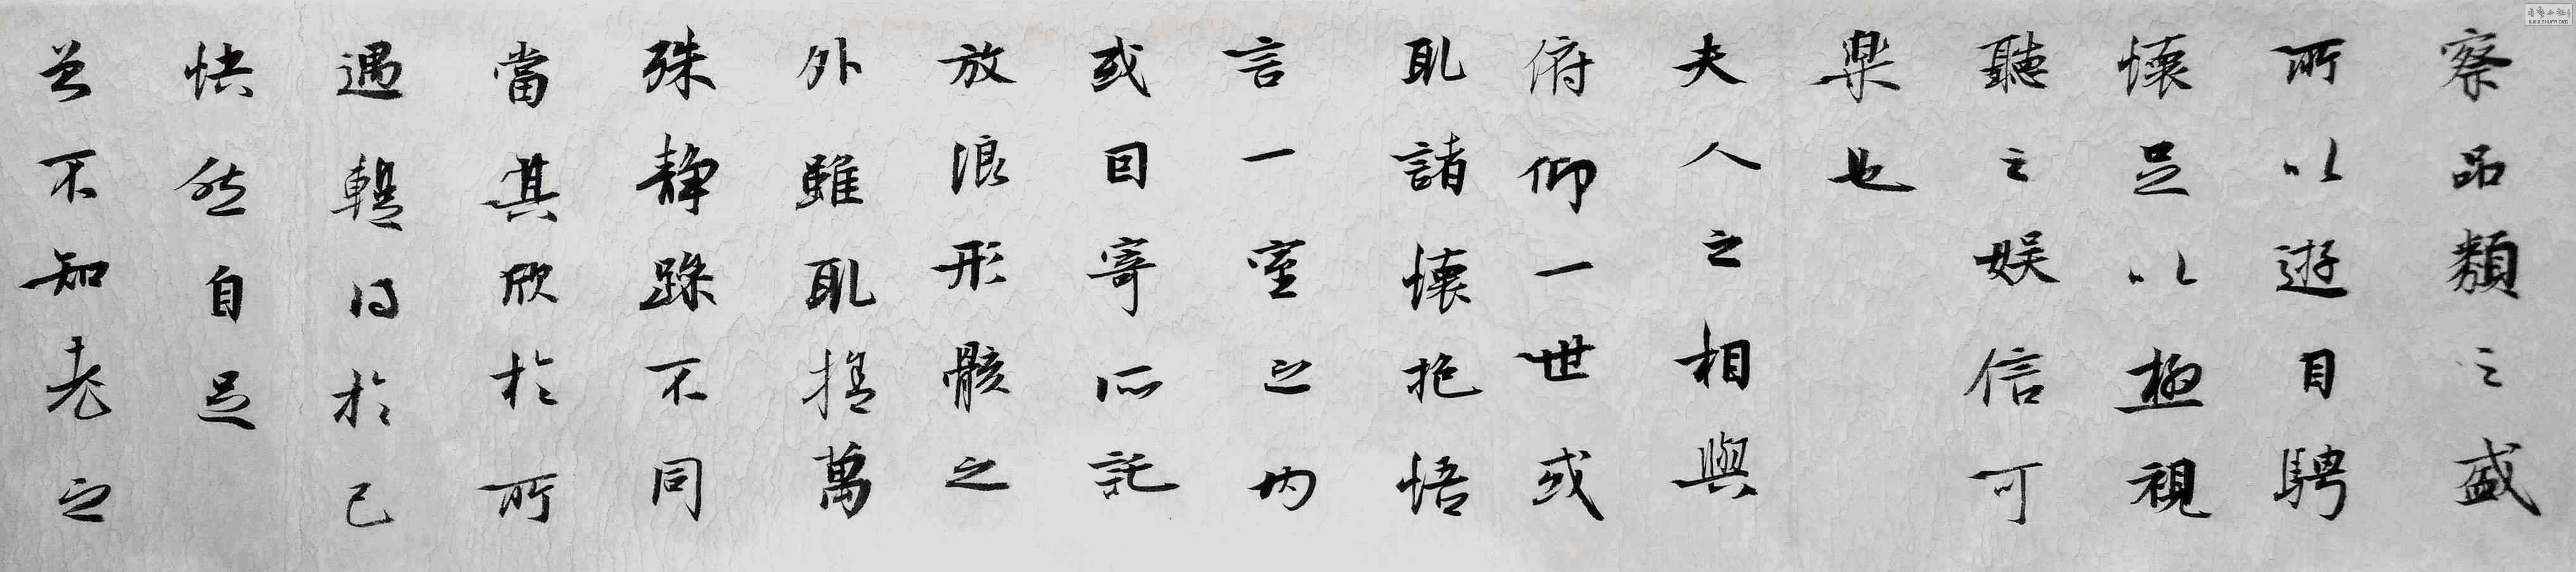 察品類之盛
所以遊目騁
懷足以極視
聽之娛信可
樂也
夫人之相與
俯仰一世或
取諸懷抱悟
言一室之內
或因寄所託
放浪形骸之
外雖取捨萬
殊靜躁不同
當其欣於所
遇蹔得於己
快然自足
曾不知老之